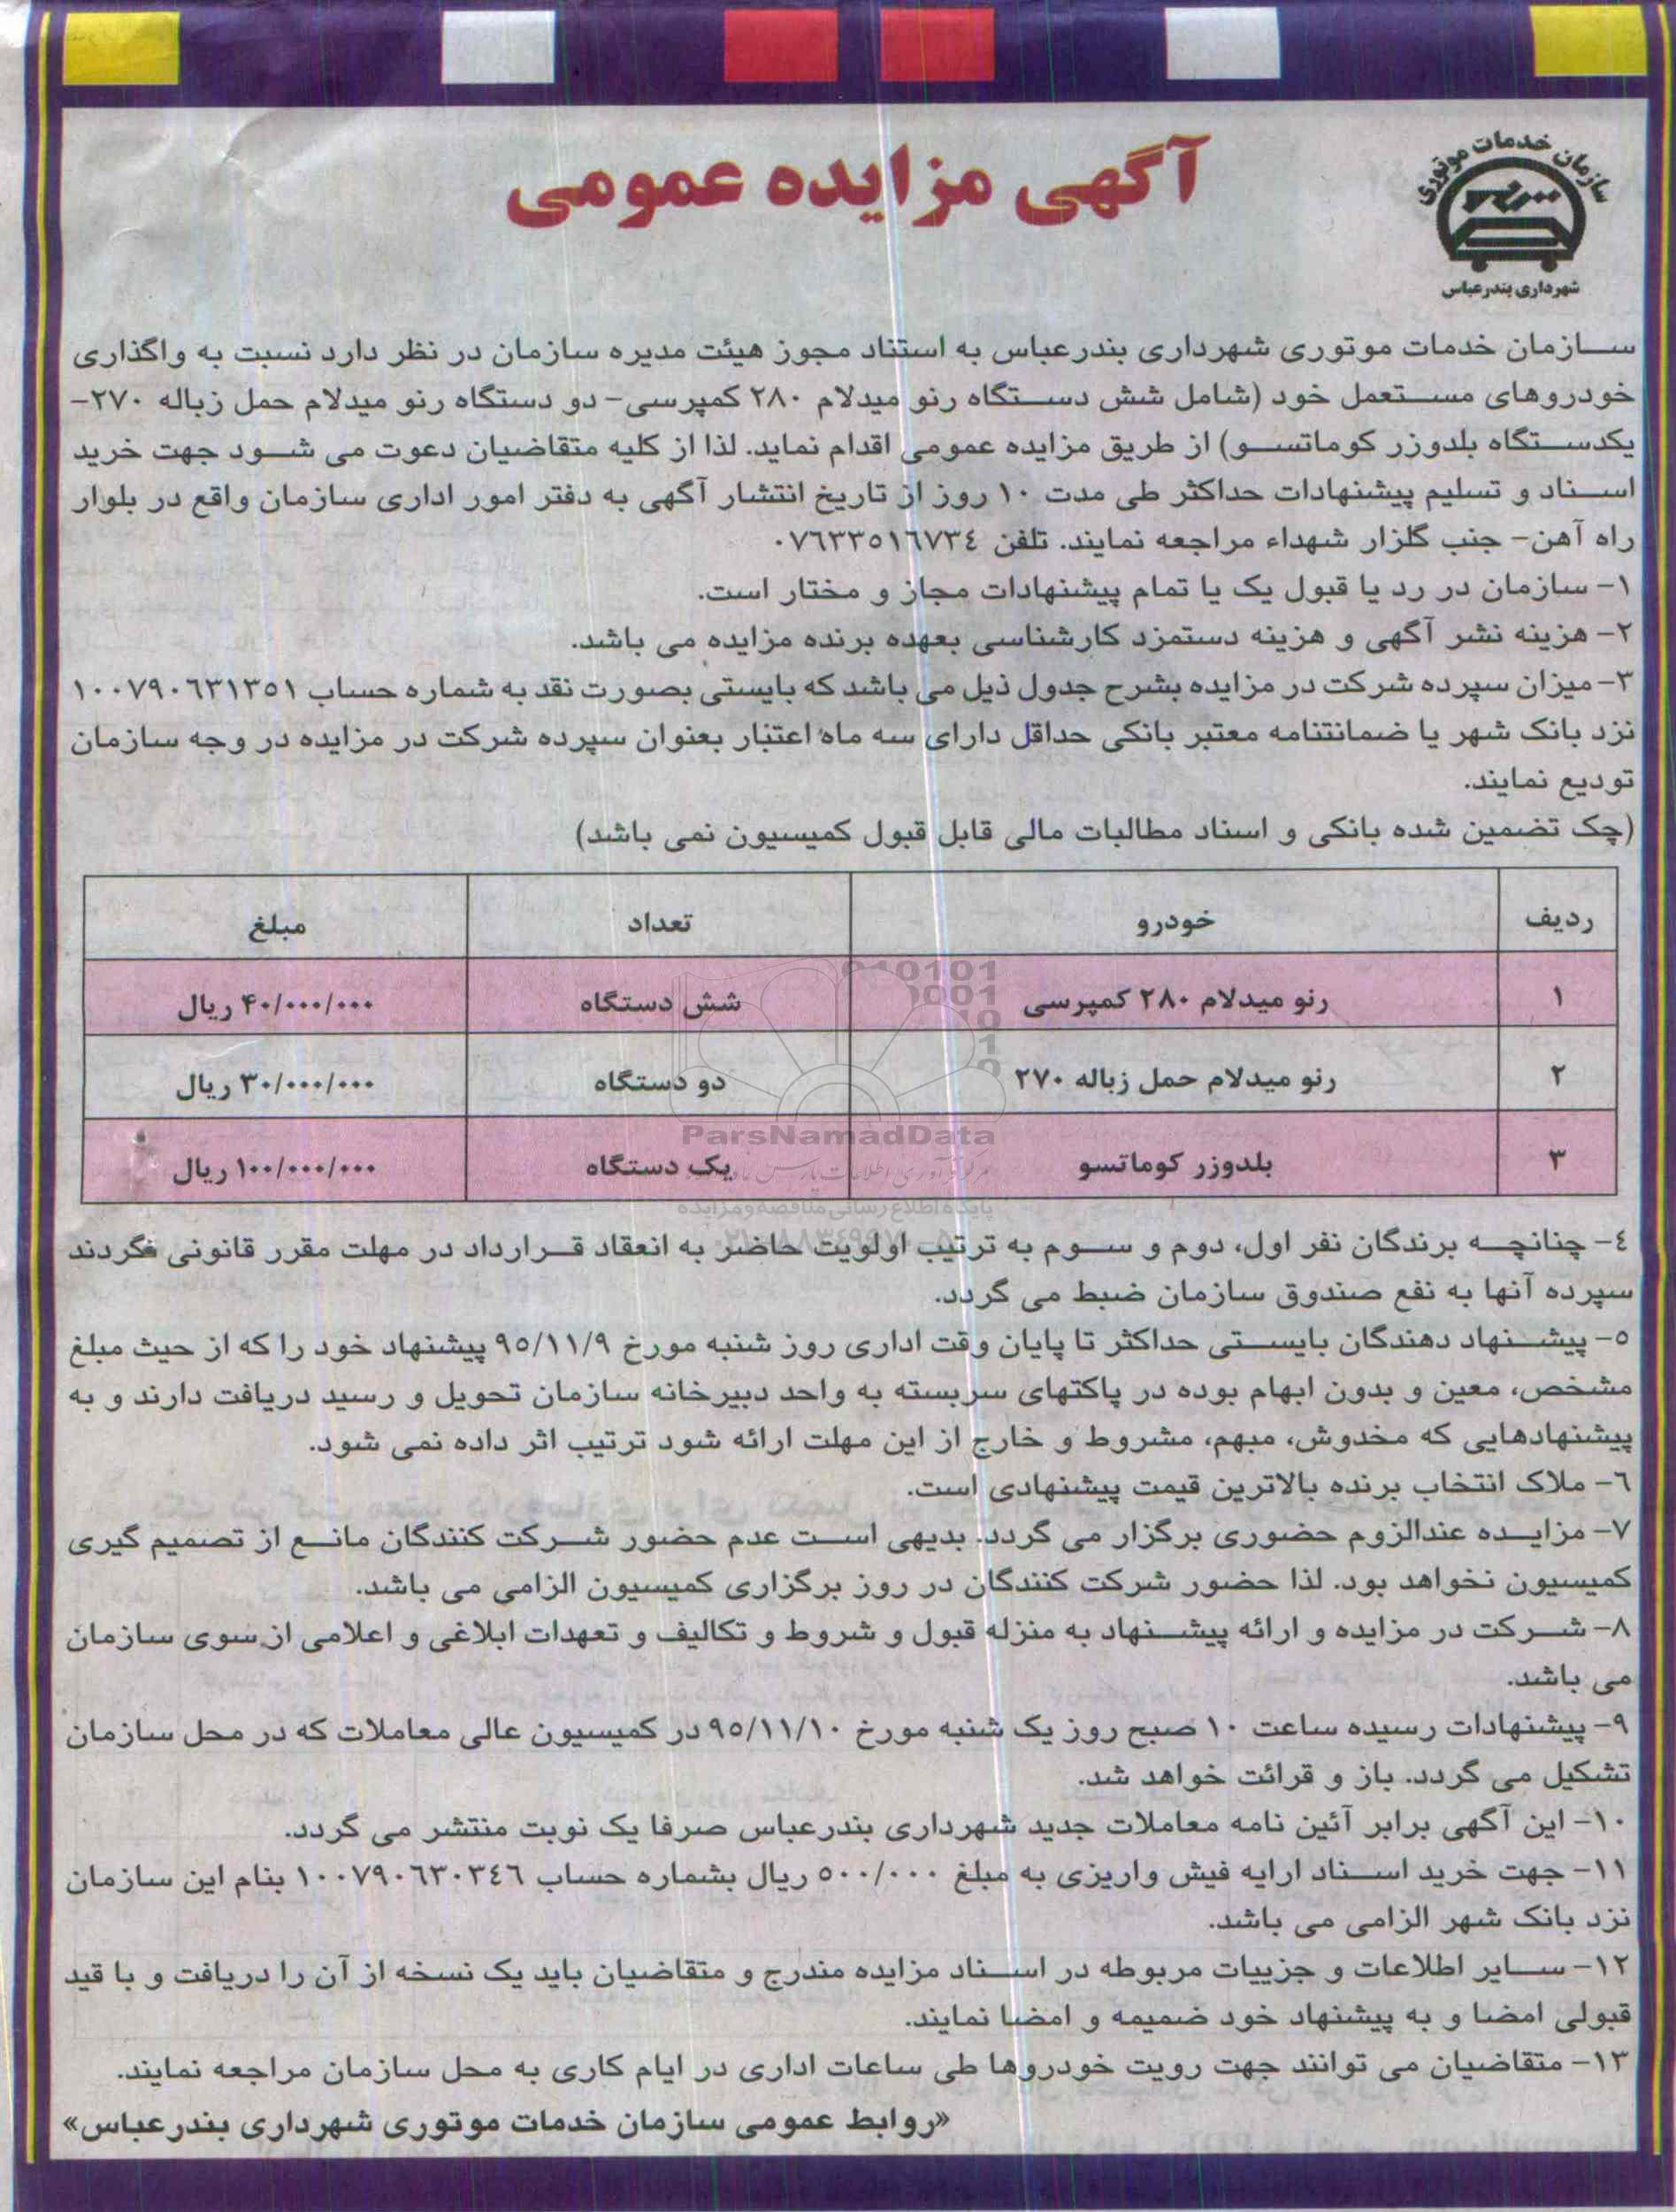 آگهی مزایده عمومی
سازمان خدمات موتوری
شهرداری بندرعباس
سازمان خدمات موتوری شهرداری بندرعباس به استناد مجوز هیئت مدیره سازمان در نظر دارد نسبت به واگذاری
خودروهای مستعمل خود (شامل شش دستگاه رنو میدلام ۲۸۰ کمپرسی- دو دستگاه رنو میدلام حمل زباله ۲۷۰-
یکدستگاه بلدوزر کوماتسو) از طریق مزایده عمومی اقدام نماید. لذا از کلیه متقاضیان دعوت می شود جهت خرید
اسناد و تسلیم پیشنهادات حداکثر طی مدت ۱۰ روز از تاریخ انتشار آگهی به دفتر امور اداری سازمان واقع در بلوار
راه آهن- جنب گلزار شهداء مراجعه نمایند. تلفن ۰۷٦۳۳٥۱٦۷۳٤
۱- سازمان در رد یا قبول یک یا تمام پیشنهادات مجاز و مختار است.
۲- هزینه نشر آگهی و هزینه دستمزد کارشناسی بعهده برنده مزایده می باشد.
۳- میزان سپرده شرکت در مزایده بشرح جدول ذیل می باشد که بایستی بصورت نقد به شماره حساب ۱۰۰۷۹۰٦۳۱۳٥۱
نزد بانک شهر یا ضمانتنامه معتبر بانکی حداقل دارای سه ماه اعتبار بعنوان سپرده شرکت در مزایده در وجه سازمان
تودیع نمایند.
(چک تضمین شده بانکی و اسناد مطالبات مالی قابل قبول کمیسیون نمی باشد)
ردیف خودرو تعداد مبلغ
۱ رنو میدلام ۲۸۰ کمپرسی شش دستگاه ۴۰/۰۰۰/۰۰۰ ریال
۲ رنو میدلام حمل زباله ۲۷۰ دو دستگاه ۳۰/۰۰۰/۰۰۰ ریال
۳ بلدوزر کوماتسو یک دستگاه ۱۰۰/۰۰۰/۰۰۰ ریال
ParsNamadData
پایگاه اطلاع رسانی مناقصه و مزایده
٤- چنانچه برندگان نفر اول، دوم و سوم به ترتیب اولویت حاضر به انعقاد قرارداد در مهلت مقرر قانونی نگردند
سپرده آنها به نفع صندوق سازمان ضبط می گردد.
٥- پیشنهاد دهندگان بایستی حداکثر تا پایان وقت اداری روز شنبه مورخ ۹٥/۱۱/۹ پیشنهاد خود را که از حیث مبلغ
مشخص، معین و بدون ابهام بوده در پاکتهای سربسته به واحد دبیرخانه سازمان تحویل و رسید دریافت دارند و به
پیشنهادهایی که مخدوش، مبهم، مشروط و خارج از این مهلت ارائه شود ترتیب اثر داده نمی شود.
٦- ملاک انتخاب برنده بالاترین قیمت پیشنهادی است.
۷- مزایده عندالزوم حضوری برگزار می گردد. بدیهی است عدم حضور شرکت کنندگان مانع از تصمیم گیری
کمیسیون نخواهد بود. لذا حضور شرکت کنندگان در روز برگزاری کمیسیون الزامی می باشد.
۸- شرکت در مزایده و ارائه پیشنهاد به منزله قبول و شروط و تکالیف و تعهدات ابلاغی و اعلامی از سوی سازمان
می باشد.
۹- پیشنهادات رسیده ساعت ۱۰ صبح روز یک شنبه مورخ ۹٥/۱۱/۱۰ در کمیسیون عالی معاملات که در محل سازمان
تشکیل می گردد. باز و قرائت خواهد شد.
۱۰- این آگهی برابر آئین نامه معاملات جدید شهرداری بندرعباس صرفا یک نوبت منتشر می گردد.
۱۱- جهت خرید اسناد ارایه فیش واریزی به مبلغ ٥۰۰/۰۰۰ ریال بشماره حساب ۱۰۰۷۹۰٦۳۰۳٤٦ بنام این سازمان
نزد بانک شهر الزامی می باشد.
۱۲- سایر اطلاعات و جزییات مربوطه در اسناد مزایده مندرج و متقاضیان باید یک نسخه از آن را دریافت و با قید
قبولی امضا و به پیشنهاد خود ضمیمه و امضا نمایند.
۱۳- متقاضیان می توانند جهت رویت خودروها طی ساعات اداری در ایام کاری به محل سازمان مراجعه نمایند.
«روابط عمومی سازمان خدمات موتوری شهرداری بندرعباس»